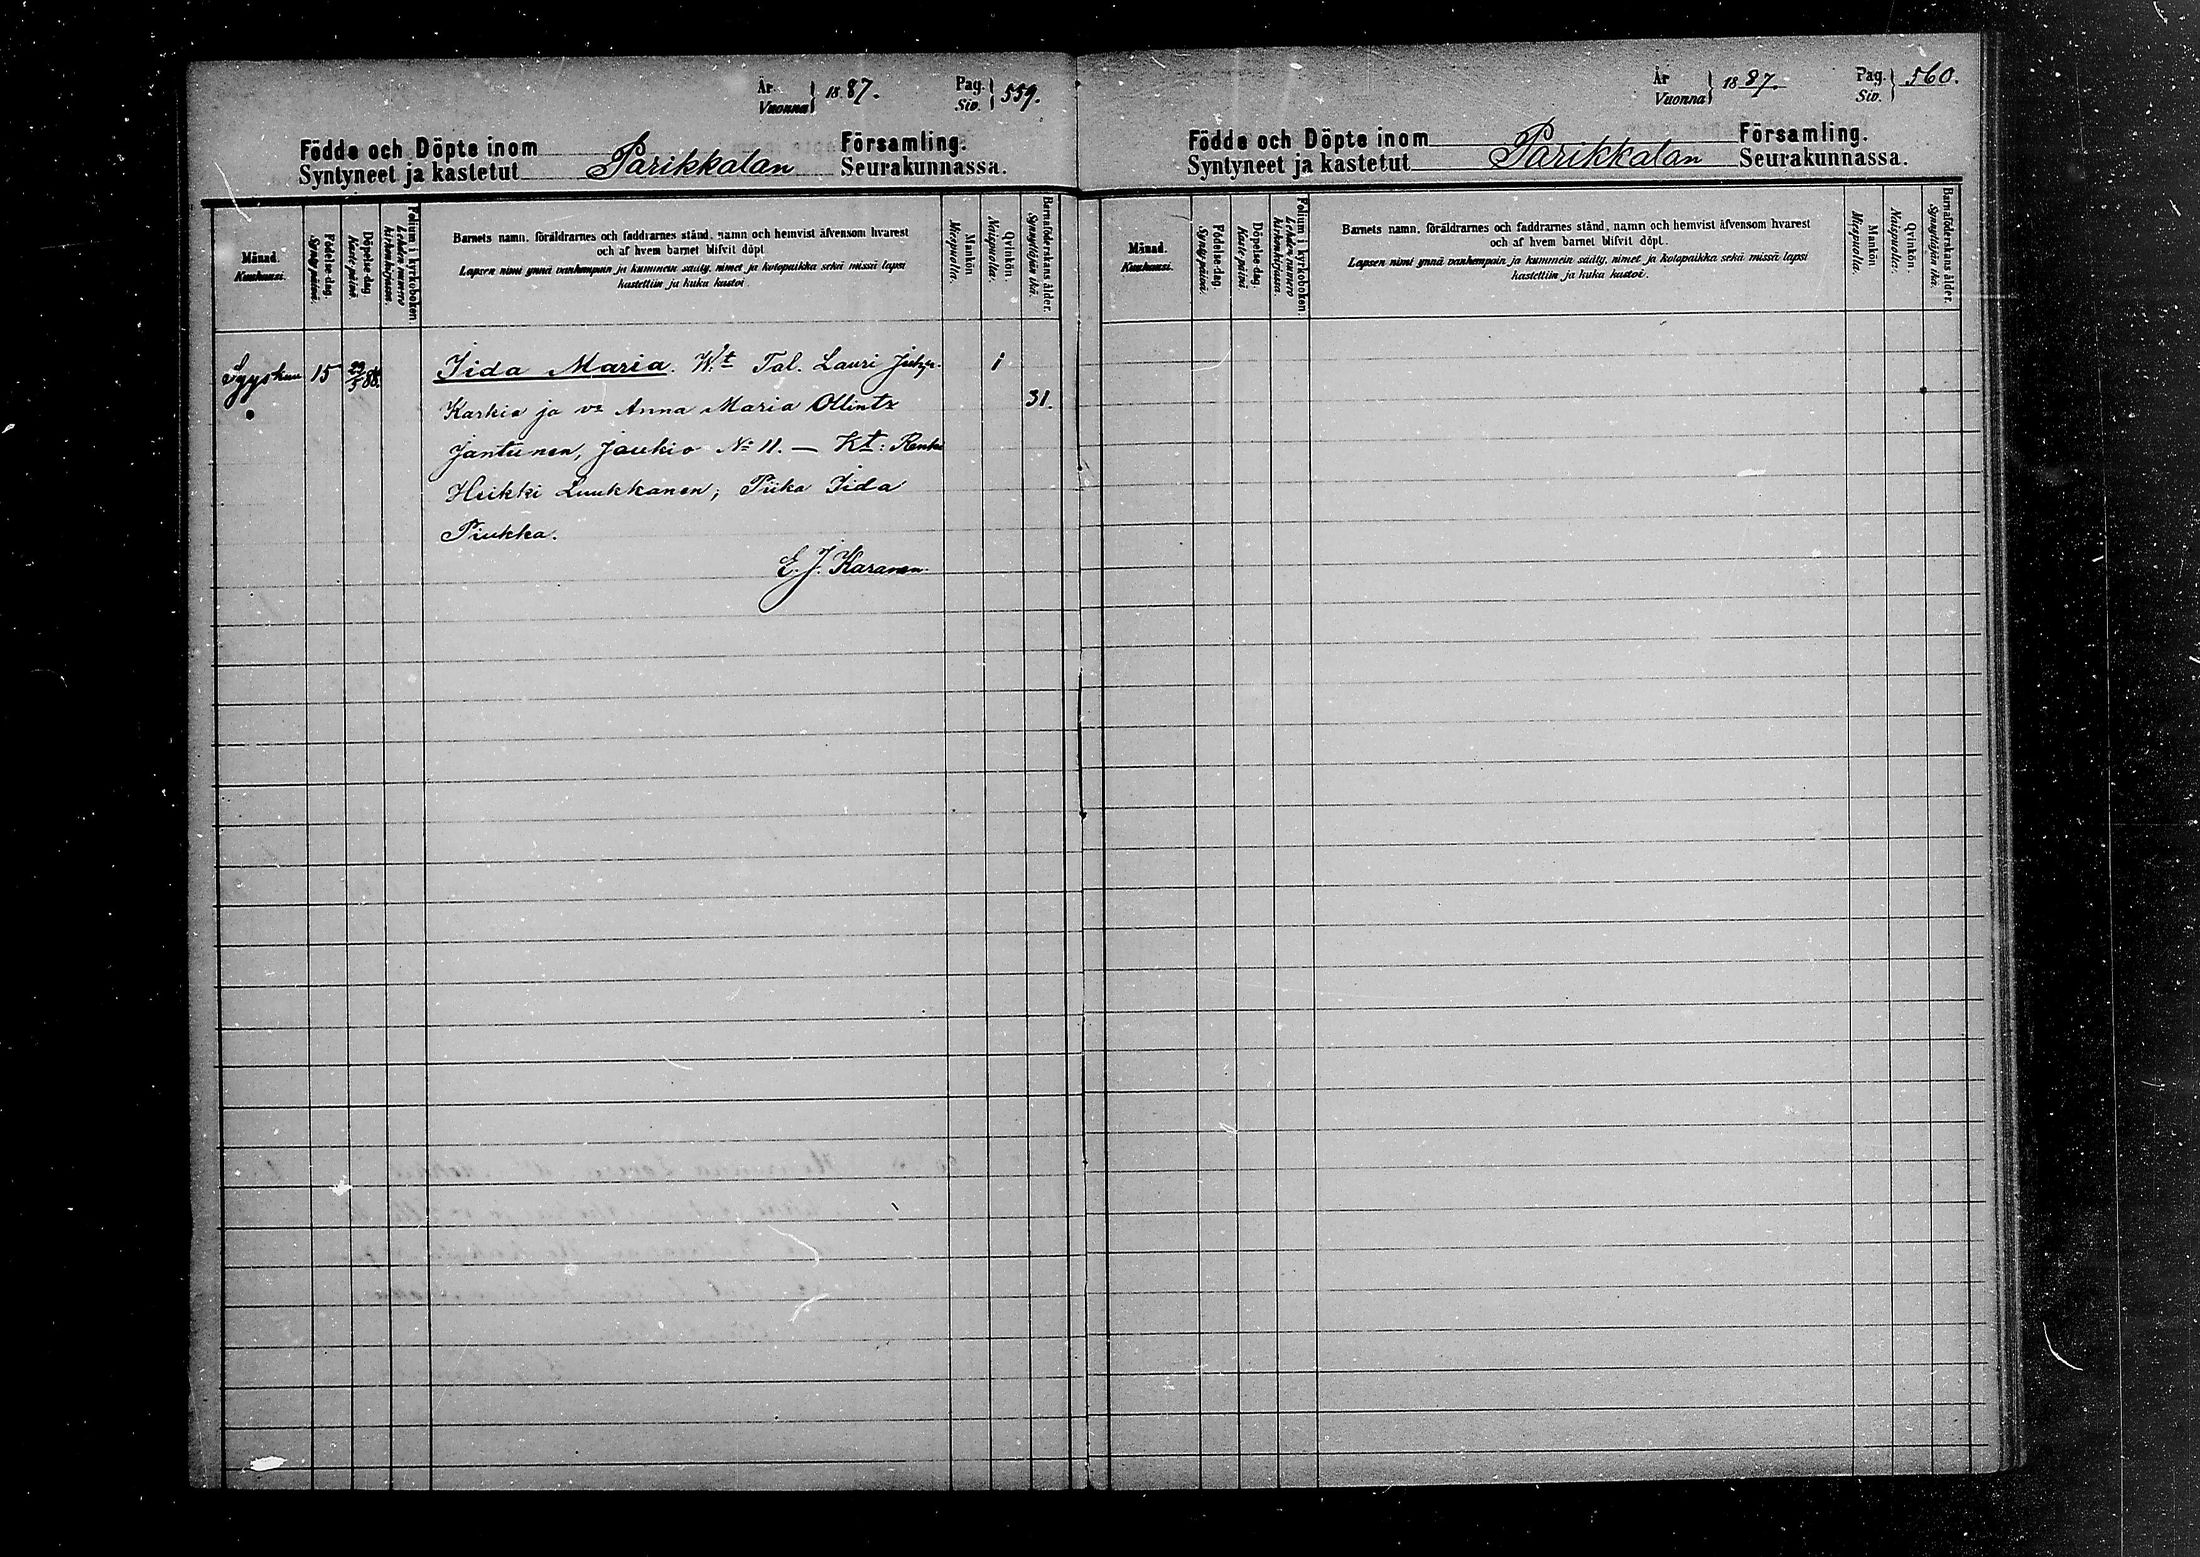 År Vuonna } 1887. Pag. Siv. } 559.
Födde och Döpte inom Församling.
Syntyneet ja kastetut Parikkalan Seurakunnassa.
Månad. Kuukausi.
Födelse-dag. Syntymäpäivä.
Döpelse-dag. Kaste-päivä.
Folium i kyrkoboken. Lehden numero kirkonkirjassa.
Barnets namn, föräldrarnes och faddrarnes stånd, namn och hemvist äfvensom hvarest
och af hvem barnet blifvit döpt.
Lapsen nimi ynnä vanhempain ja kummein sääty, nimet ja kotopaikka sekä missä lapsi
kastettiin ja kuka kastoi.
Mankön Miespuolta.
Qvinkön. Naispuolta.
Barnaföderskans ålder. Synnyttäjän ikä.
Syyskuu 15 29/5 88. Iida Maria. W:t Tal. Lauri 1
Karkia ja vo Anna Maria Ollintr 31.
Jantunen, Joukio No 11. — Kt: Renki
Heikki Luukkanen; Piika Iida
Piukka.
E. J. Karanen.
År Vuonna } 1887. Pag. Siv. } 560.
Födde och Döpte inom Församling.
Syntyneet ja kastetut Parikkalan Seurakunnassa.
Månad. Kuukausi.
Födelse-dag. Syntymäpäivä.
Döpelse-dag. Kaste-päivä
Folium i kyrkoboken. Lehden numero kirkonkirjassa.
Barnets namn, föräldrarnes och faddrarnes stånd, namn och hemvist äfvensom hvarest
och af hvem barnet blifvit döpt.
Lapsen nimi ynnä vanhempain ja kummein sääty, nimet ja kotopaikka sekä missä lapsi
kastettiin ja kuka kastoi.
Mankön Miespuolta.
Qvinkön Naispuolta.
Barnaföderskans ålder. Synnyttäjän ikä.